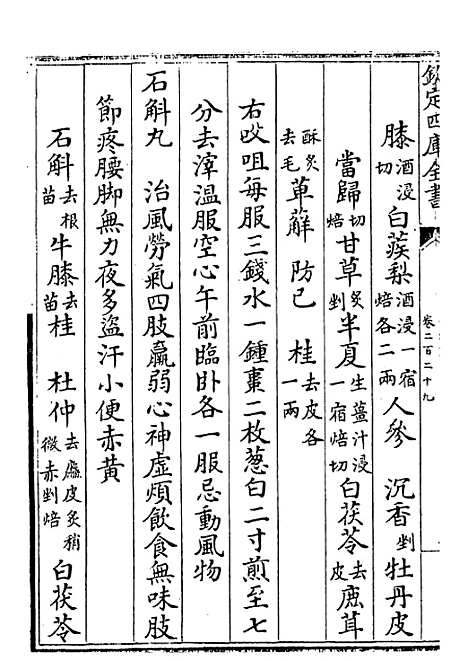 欽定四庫全書
卷二百二十九
膝酒浸切白蒺梨酒浸一宿焙各二兩人參 沉香剉牡丹皮
當歸切焙甘草炙剉半夏生薑汁浸一宿焙切白茯苓去皮鹿茸
酥炙去毛萆薢 防己 桂去皮各一兩
右㕮咀每服三錢水一鍾棗二枚葱白二寸煎至七
分去滓溫服空心午前臨卧各一服忌動風物
石斛丸 治風勞氣四肢羸弱心神虛煩飲食無味肢
節疼腰脚無力夜多盜汗小便赤黃
石斛去根苗牛膝去苗桂 杜仲去麤皮炙稍微赤剉焙白茯苓